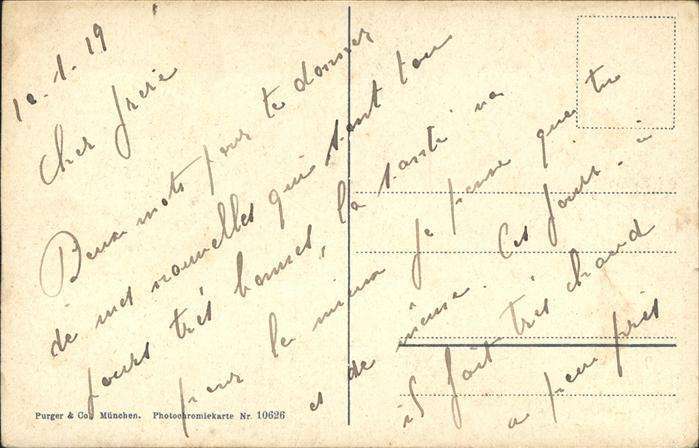 10-1-19
Cher frère
Deux mots pour te donner
de mes nouvelles qui sont tou
jours très bonnes, la santé va
pour le mieux je pense que tu
es de même. Ces jours-ci
il fait très chaud
a peu près
Purger & Co. München. Photochromiekarte Nr. 10626